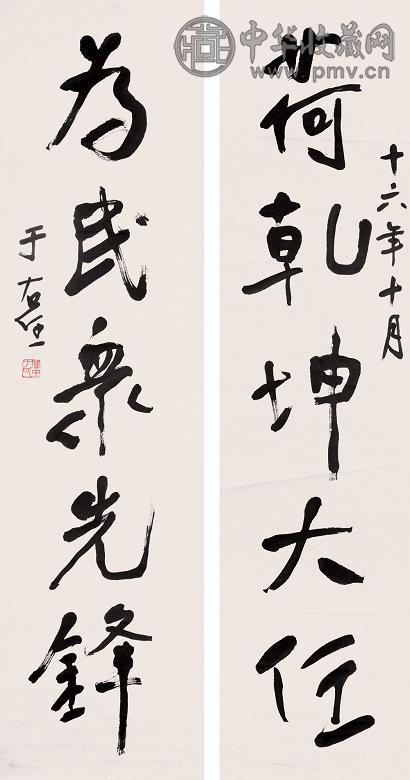 中华收藏网
www.pmv.cn
十六年十月
荷乾坤大任
為民眾先鋒
于右任